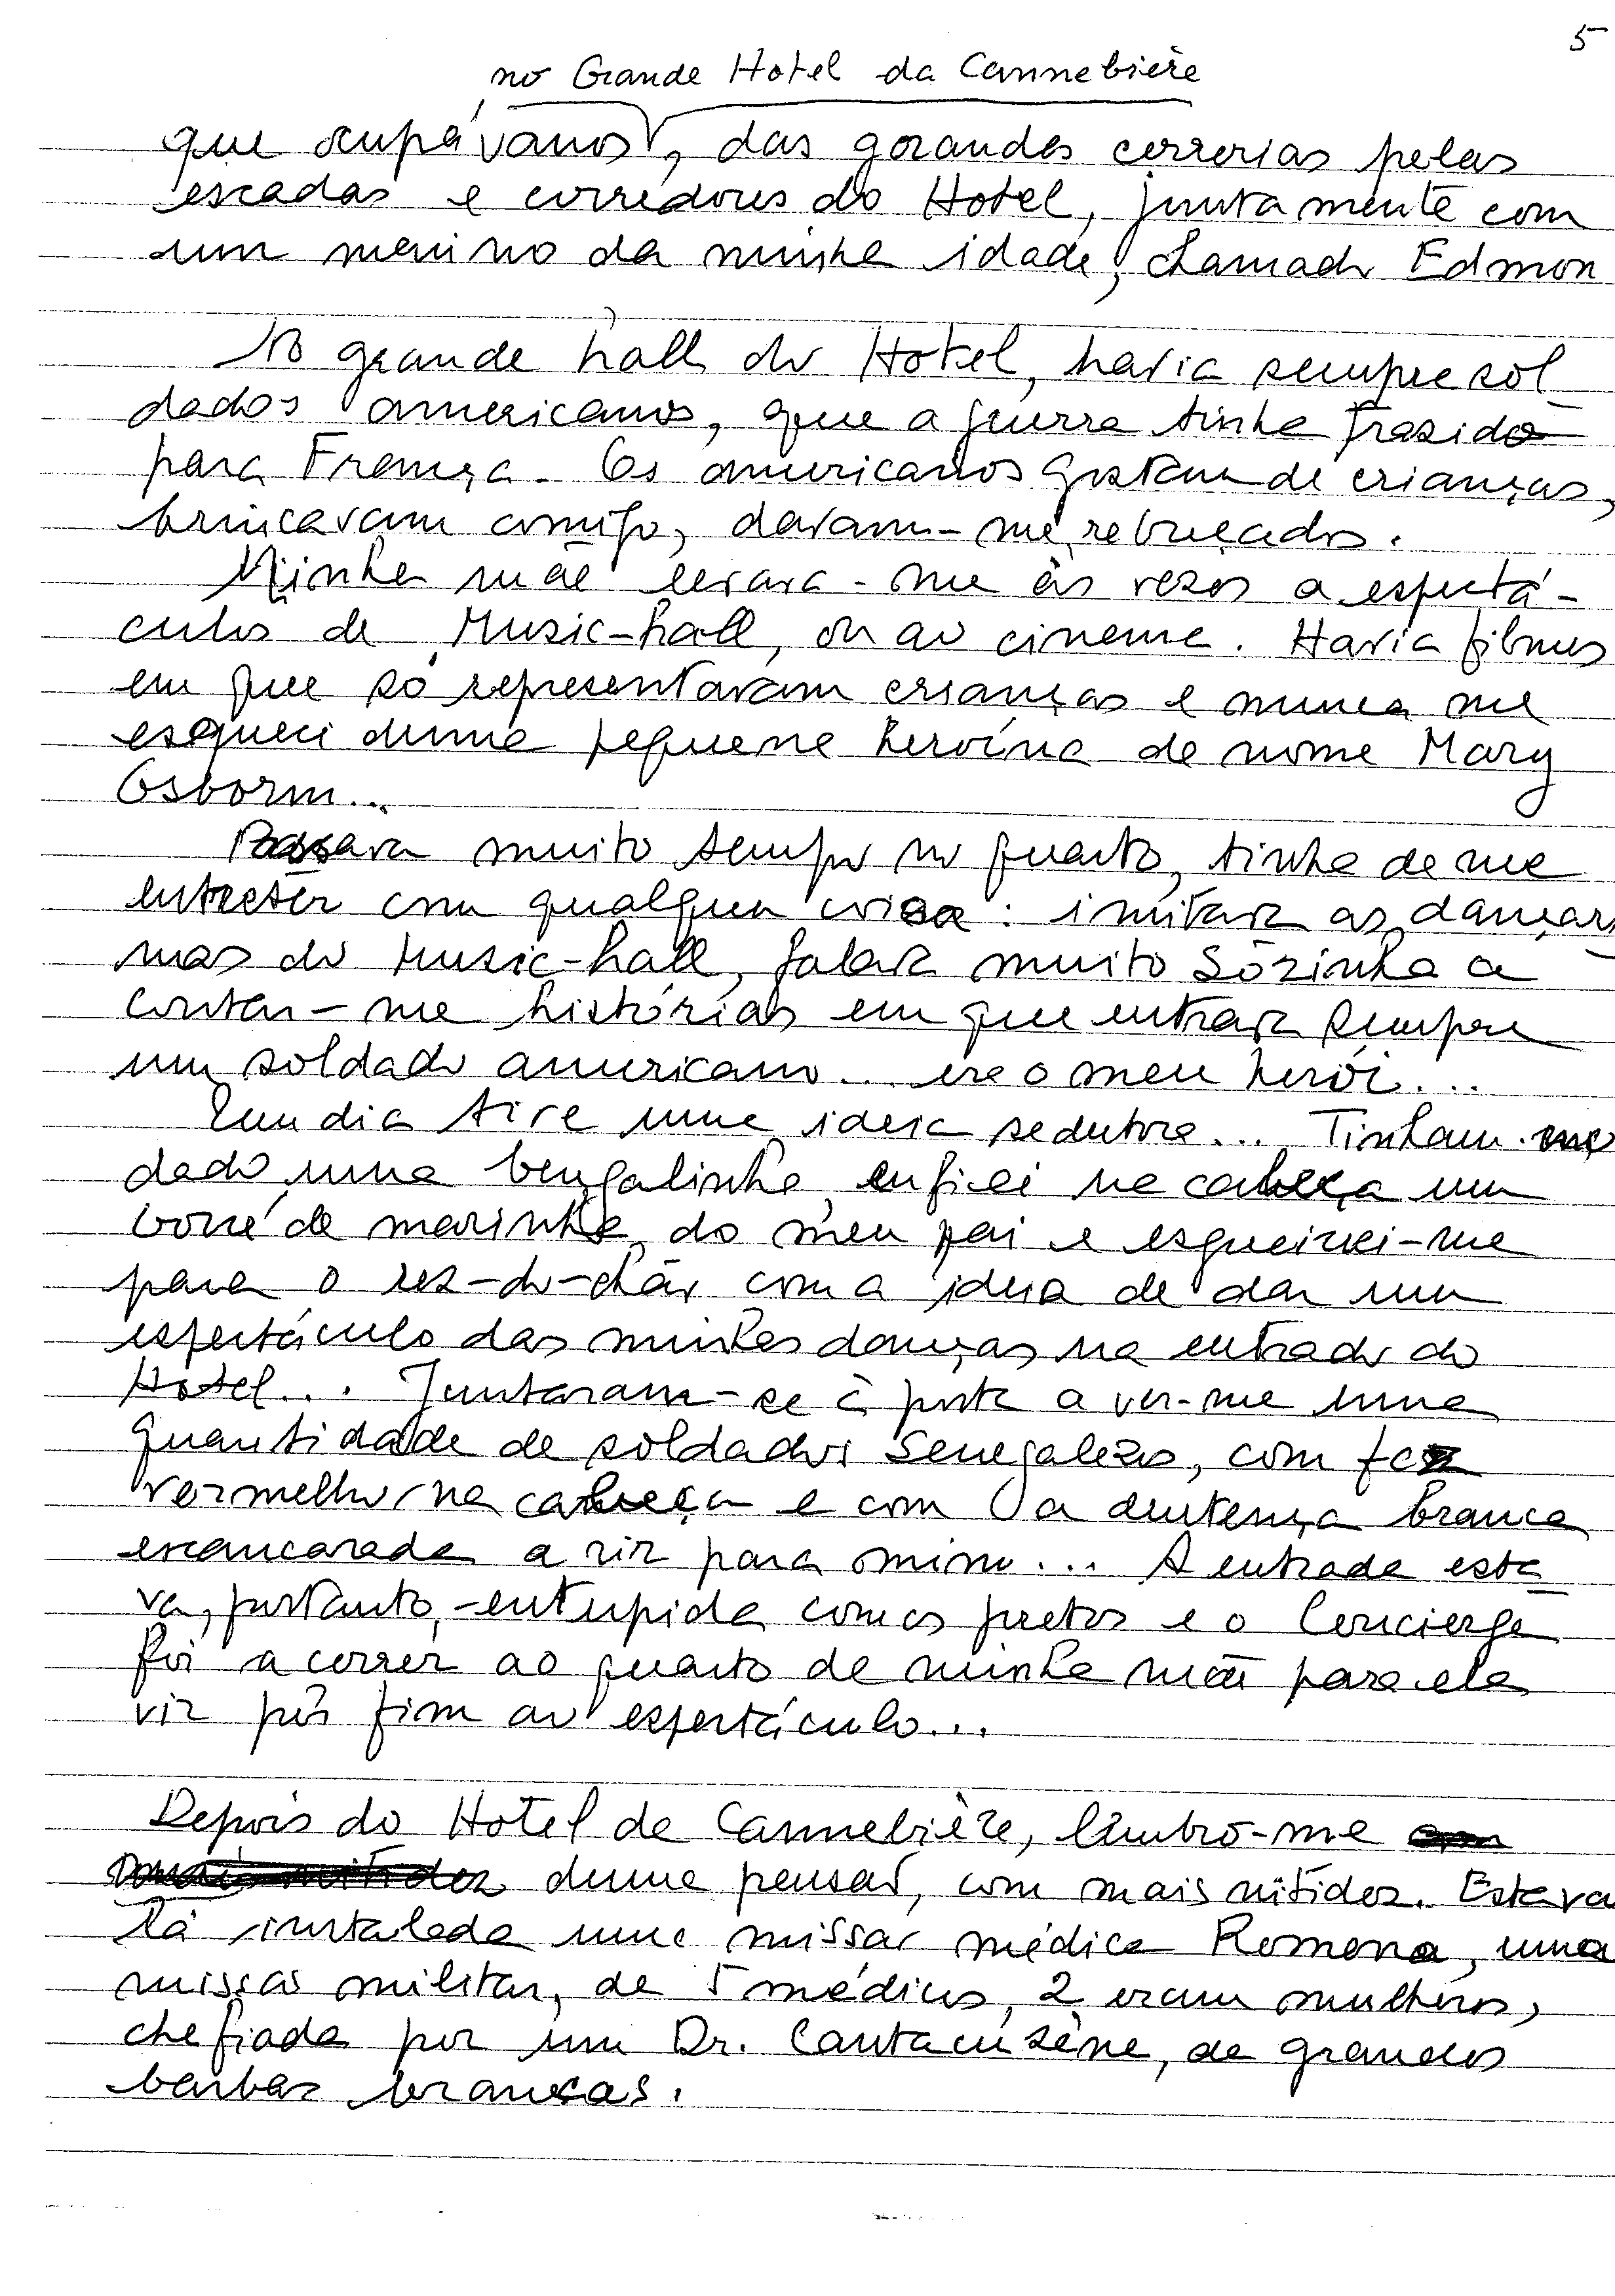 5
no Grande Hotel da Cannebière
que ocupávamos, das grandes correrias pelas
escadas e corredores do Hotel, juntamente com
um menino da minha idade, chamado Edmon
No grande hall do Hotel, havia sempre sol-
dados americanos, que a guerra tinha trazido
para França. Os americanos gostam de crianças,
brincavam comigo, davam-me rebuçados.
Minha mãe levava-me às vezes a espectá-
culos de Music-hall, ou ao cinema. Havia filmes
em que só representavam crianças e nunca me
esqueci duma pequena heroína de nome Mary
Osborn...
Passava muito tempo no quarto, tinha de me
entreter com qualquer coisa: imitar as dançari
nas do Music-hall, falar muito sòzinha a
contar-me histórias em que entrava sempre
um soldado americano... era o meu herói...
Um dia tive uma ideia sedutora... Tinham-me
dado uma bengalinha, enfiei na cabeça um
boné de marinha do meu pai e esgueirei-me
para o rez-do-chão com a ideia de dar um
espectáculo das minhas danças na entrada do
Hotel... Juntaram-se à porta a ver-me uma
quantidade de soldados Senegaleses, com fez
vermelho na cabeça e com a dentença branca
escancarada a rir para mim... A entrada esta-
va, portanto, entupida com os pretos e o Concierge
foi a correr ao quarto de minha mãe para ela
vir pôr fim ao espectáculo...
Depois do Hotel de Cannebière, lembro-me
duma pensão, com mais nitidez. Estava
lá instalada uma missão médica Romena, uma
missão militar, de 5 médicos, 2 eram mulheres,
chefiada por um Dr. Cantacuzène, de grandes
barbas brancas.